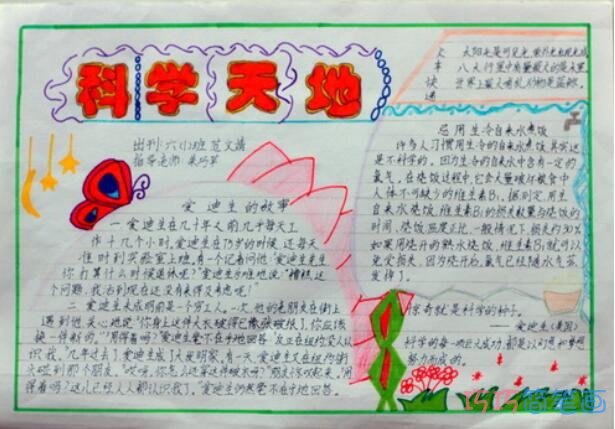 科学天地
出刊:六(1)班 范文婧
指导老师:
爱迪生的故事
一 爱迪生在几十年人前,几乎每天工
作十几个小时,爱迪生在75岁的时候,还每天
准时到实验室上班,有一个记者问他:"爱迪生先生
你打算什么时候退休呢?"爱迪生为难地说:"糟糕,这
个问题,我活到现在还没有来得及考虑呢!"
二 爱迪生未成明前是一个穷工人。一次,他的老朋友在街上
遇到他,关心地说:"你身上这件大衣破得已
换一件新的。""用得着吗?"爱迪生毫不在乎地回答:"反正在纽约没人认
识我。"几年过去了,爱迪生成了大发明家,有一天,爱迪生又在纽约街
头碰到那个朋友。"哎呀,你怎么还穿这件破衣呀?
得着吗?这儿已经人人都认识我了。"爱迪生仍然毫不在乎地回答。
科
快
太阳光是可见光、
八大行星中质量最大的是木星
世界上最大哺乳动物是蓝鲸。
忌用生冷自来水煮饭
许多人习惯用生冷的自来水煮饭,其实这
是不科学的。因为生冷的自来水中含有一定的
氯气,在烧饭过程中,它会大量破坏粮食中
人体不可缺少的维生素B₁。据测定,用生
自来水烧饭,维生素B₁的损失数量与烧饭的
时间、烧饭温度正比,一般情况下,损失约30%
如果用烧开的熟水烧饭,维生素B₁就可以
免受损失,因为烧开后,氯气已经随水气蒸
发掉了。
惊奇就是科学的种子。
——爱迪生(美国)
科学的每一项巨大成功,都是以幻想和
努力而成的。
简笔画